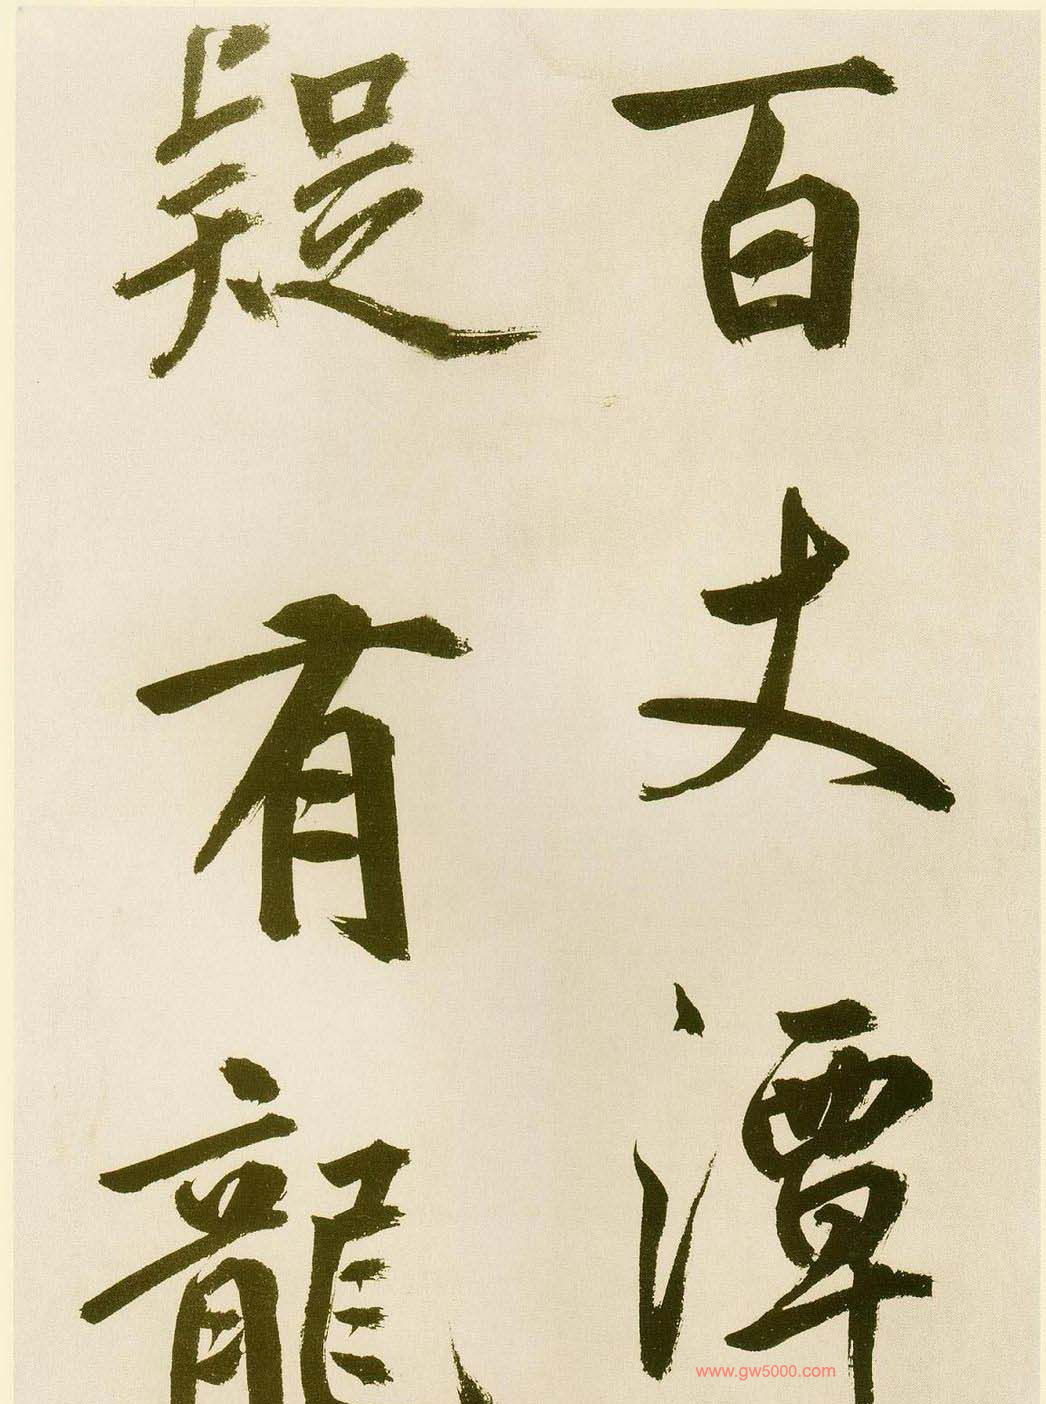 百丈潭
疑有龍
www.gw5000.com